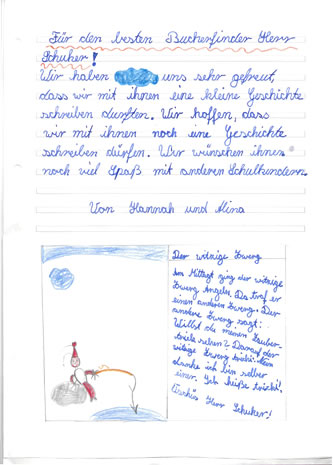 Für den besten Bucherfinder Herr
Schuker!
Wir haben uns sehr gefreut,
dass wir mit ihnen eine kleine Geschichte
schreiben durften. Wir hoffen, dass
wir mit ihnen noch eine Geschichte
schreiben dürfen. Wir wünschen ihnen
noch viel Spaß mit anderen Schulkindern.
Von Hannah und Mina
Der witzige Zwerg
Am Mittag ging der witzige
Zwerg Angeln. Da traf er
einen anderen Zwerg. Der
andere Zwerg sagt:
Willst du meinen Zauber-
tricks sehen? Darauf der
witzige Zwerg
danke ich bin selber
einer. Ich heiße
Tschüs Herr Schuker!